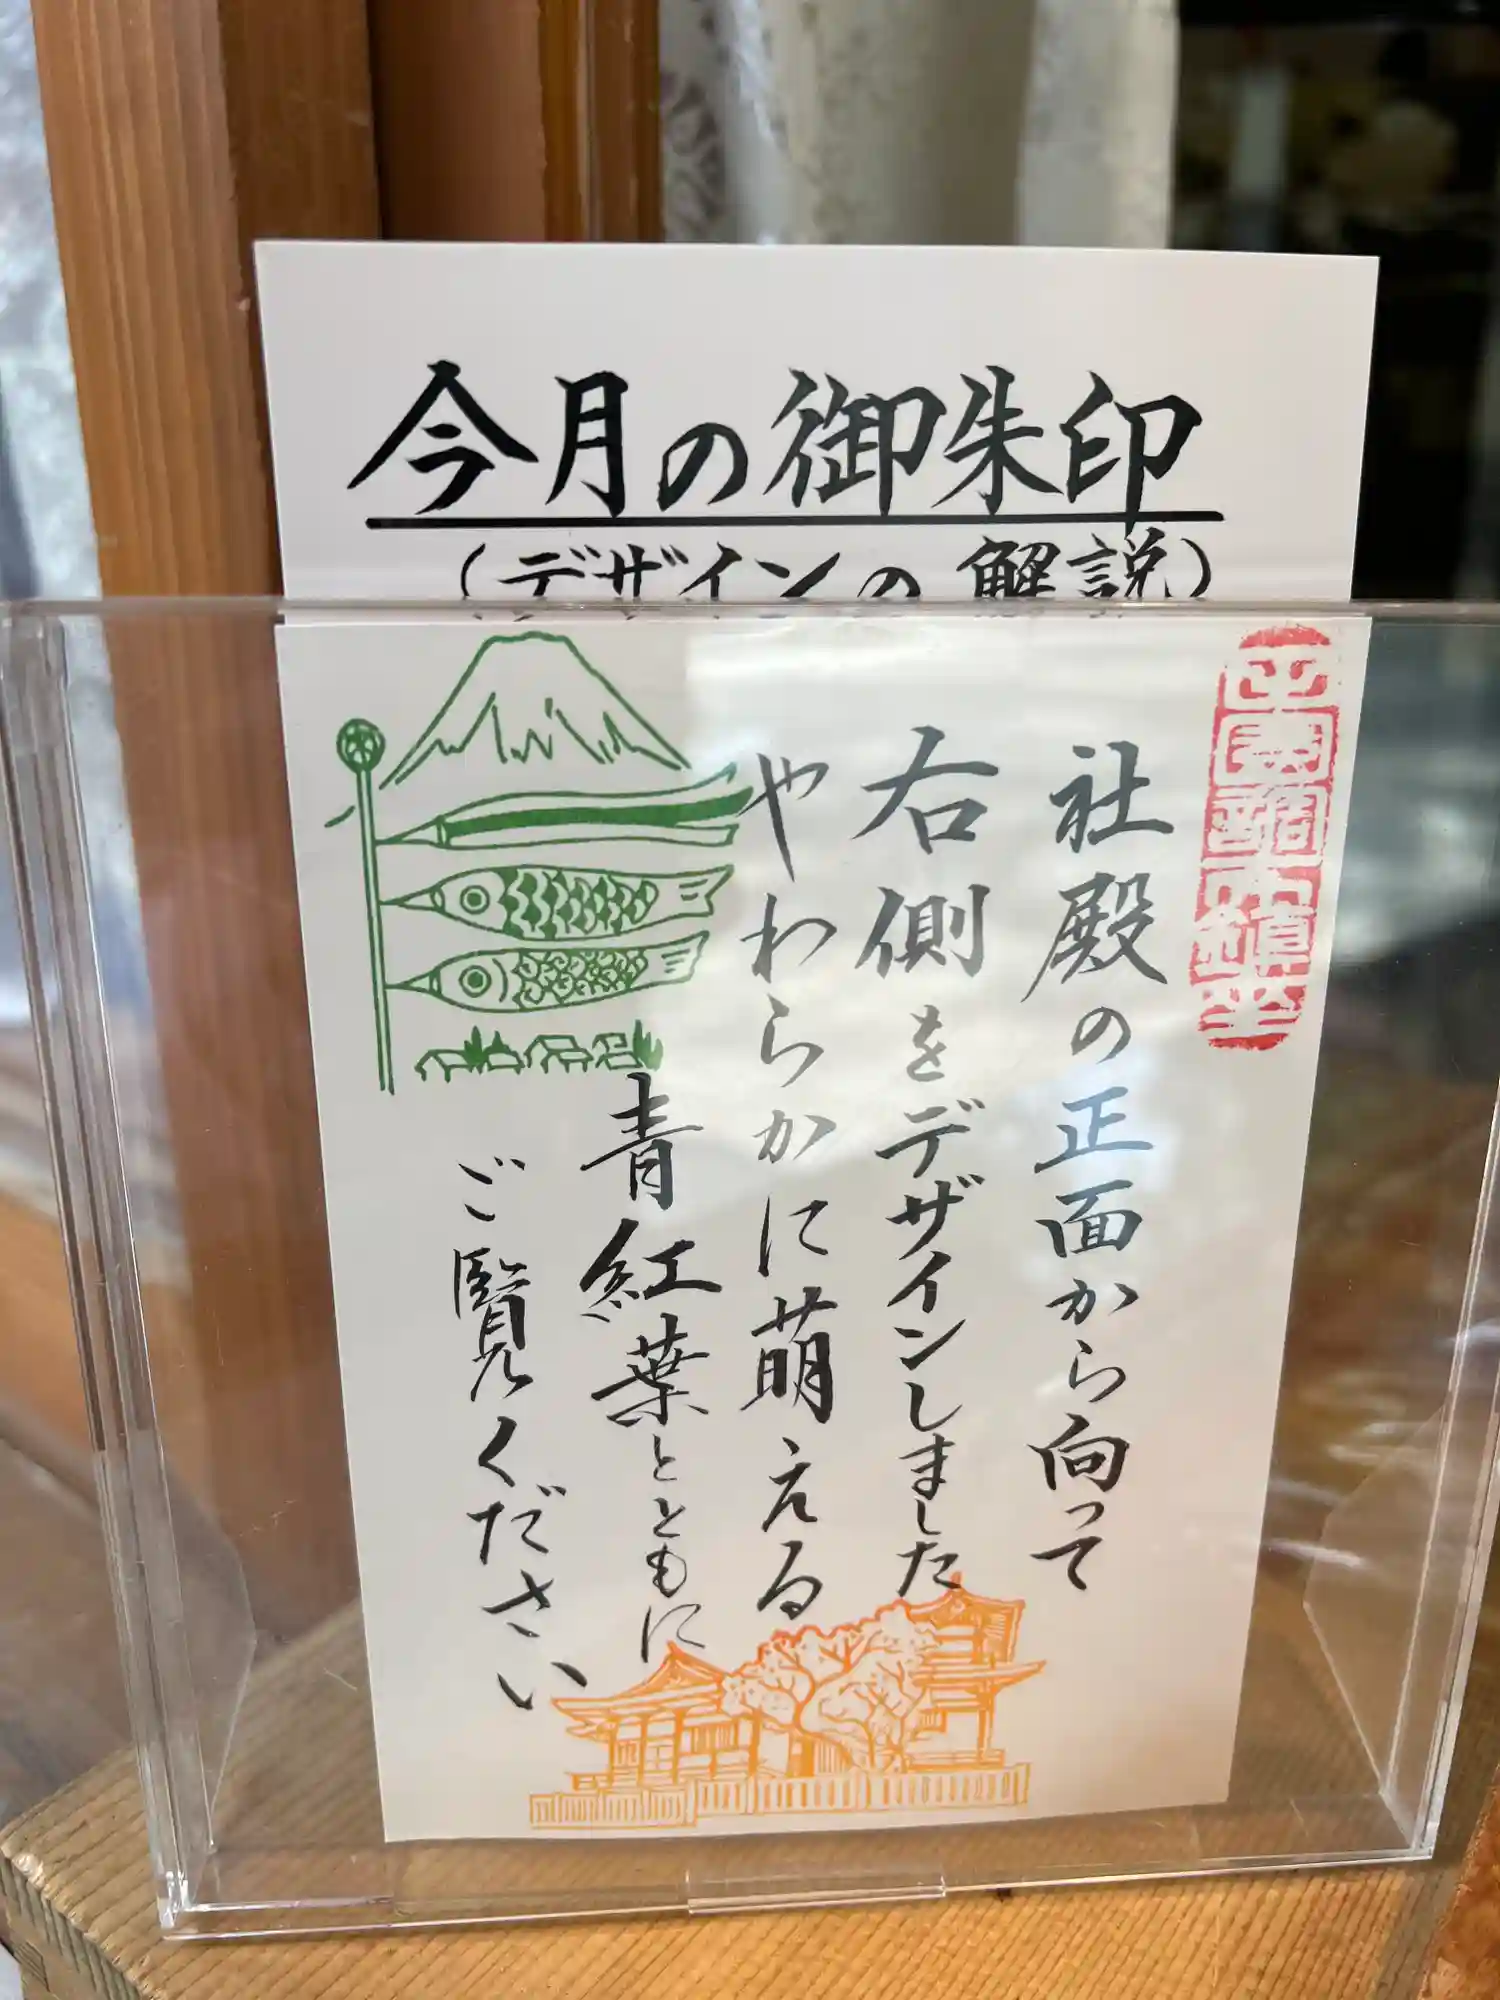 今月の御朱印
(デザインの解説)
社殿の正面から向って
右側をデザインしました
やわらかに萌える
青紅葉とともに
ご覧ください